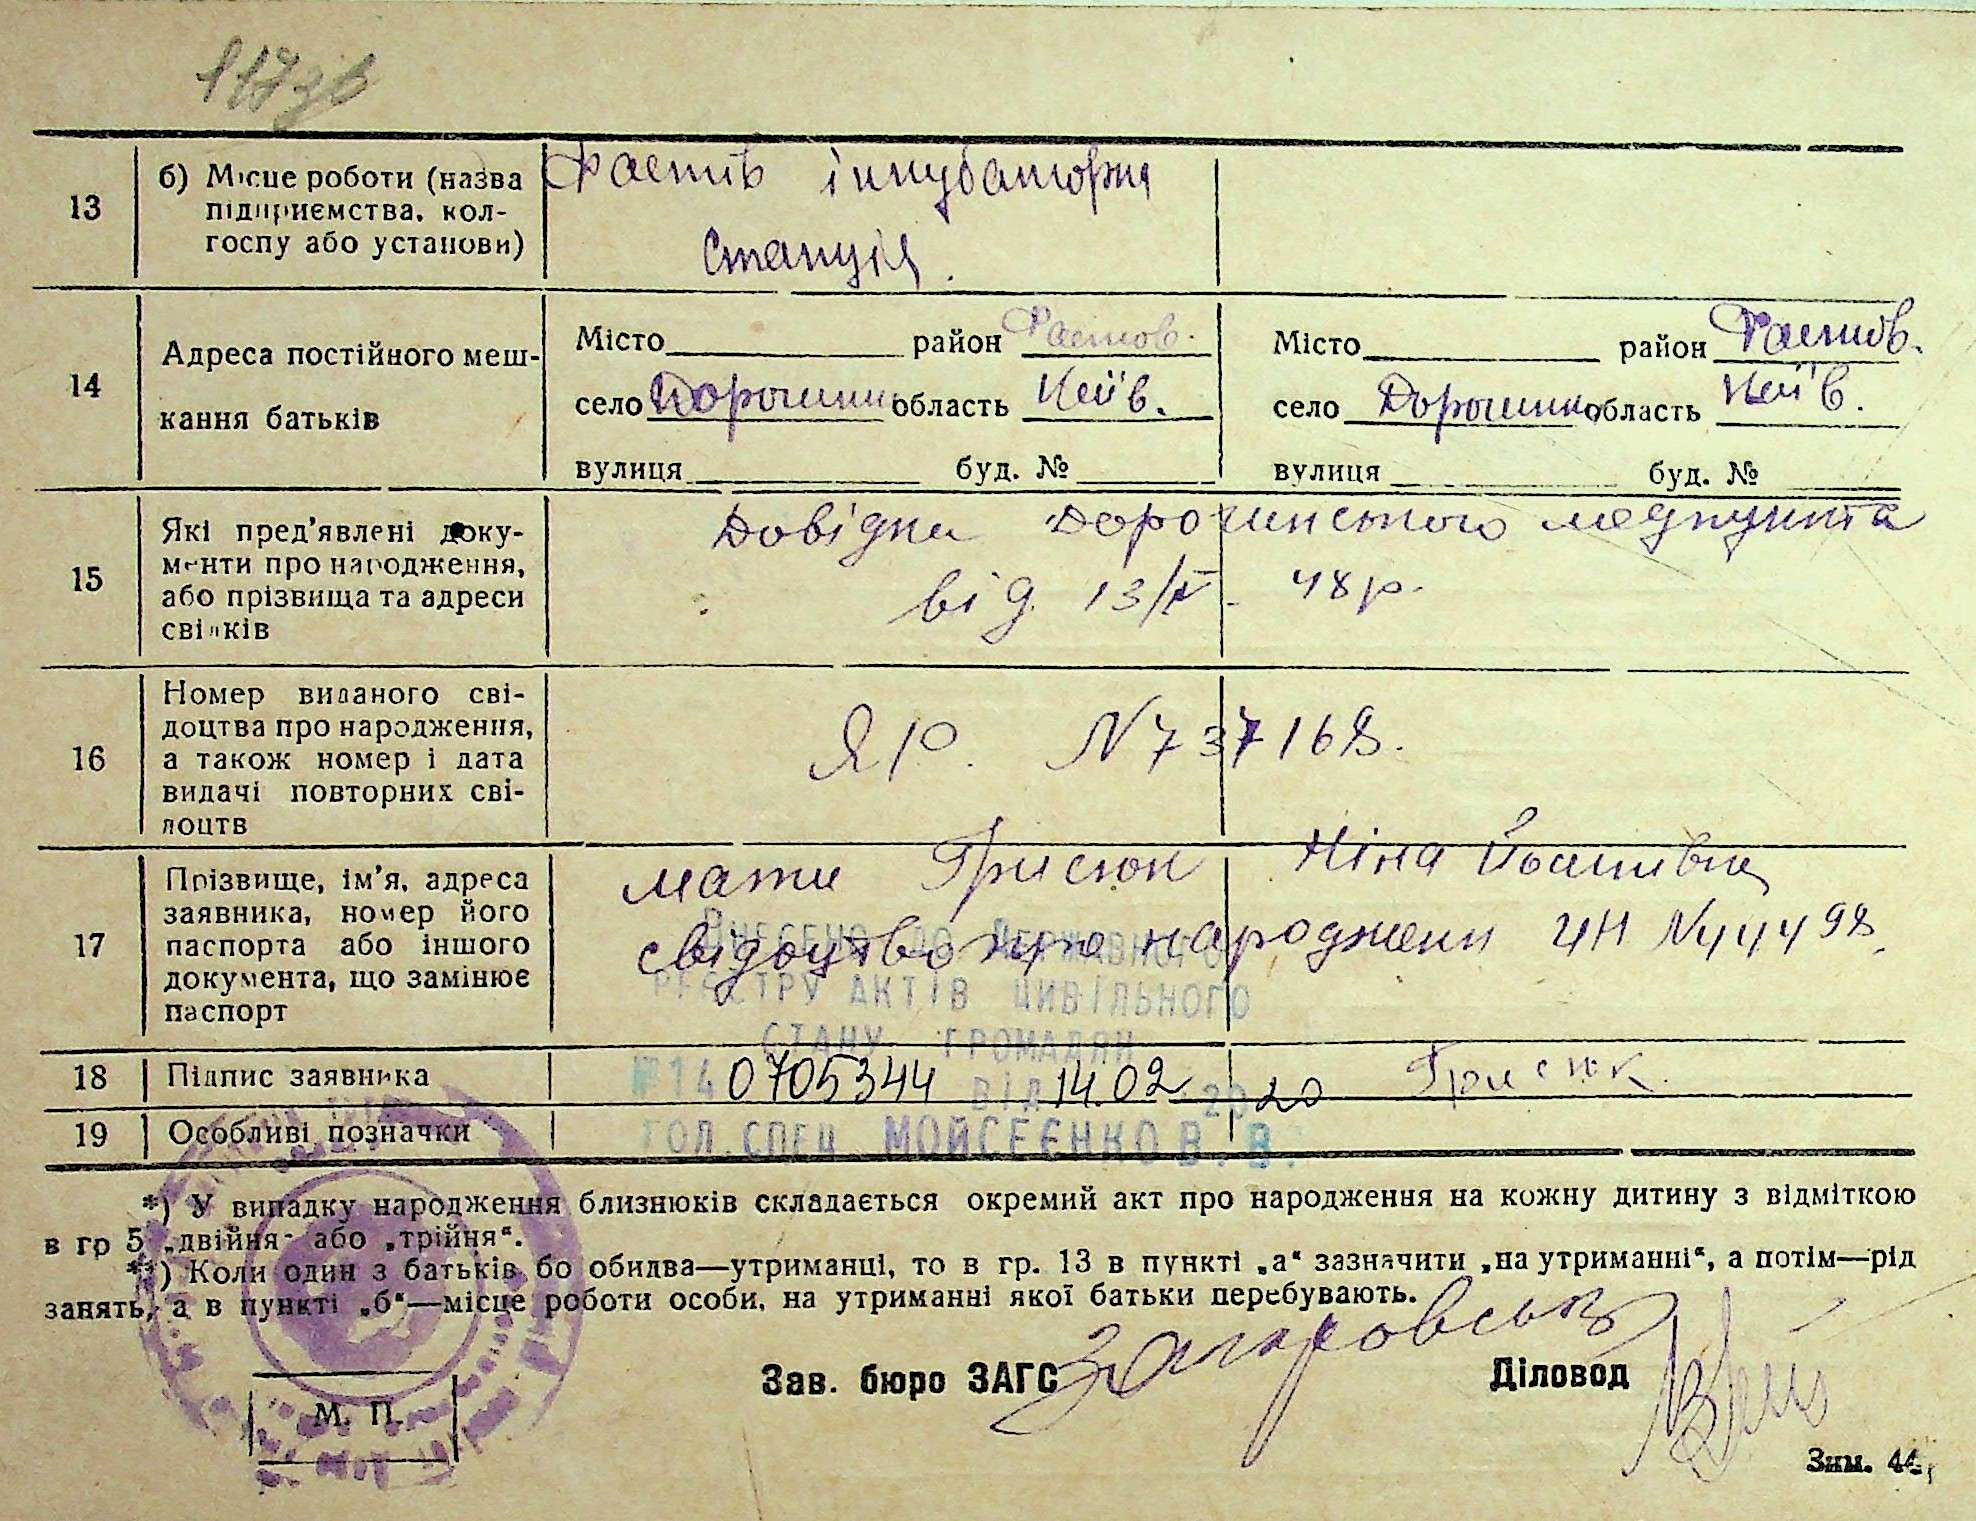 13 б) Місце роботи (назва Фастів інкубаторна
підприємства, кол-
госпу або установи) Станція.
14 Адреса постійного меш-
кання батьків
Місто район Фастов. Місто район Фастов.
село Дорошинк область Київ. село Дорошинк область Київ.
вулиця буд. № вулиця буд. №
15 Які пред'явлені доку-
менти про народження,
або прізвища та адреси
свідків
Довідка Дорошинського медпункта
від 13/IX. 48 р.
16 Номер виданого сві-
доцтва про народження,
а також номер і дата
видачі повторних сві-
доцтв
ЯЮ. N 737168.
17 Прізвище, ім'я, адреса
заявника, номер його
паспорта або іншого
документа, що замінює
паспорт
мати Грисюк Ніна Йосипівна
свідоцтво про народжени ЧН N 44498.
Внесено до Державного
реєстру актів цивільного
стану громадян
№14 0705344 від 14.02 2020
гол. спец. Мойсеєнко В. В.
18 Підпис заявника Грисюк.
19 Особливі позначки
*) У випадку народження близнюків складається окремий акт про народження на кожну дитину з відміткою
в гр 5 „двійня" або „трійня".
**) Коли один з батьків бо обидва—утриманці, то в гр. 13 в пункті „а" зазначити „на утриманні", а потім—рід
занять, а в пункті „б"—місце роботи особи, на утриманні якої батьки перебувають.
Зав. бюро ЗАГС Діловод
М. П.
Зим. 44